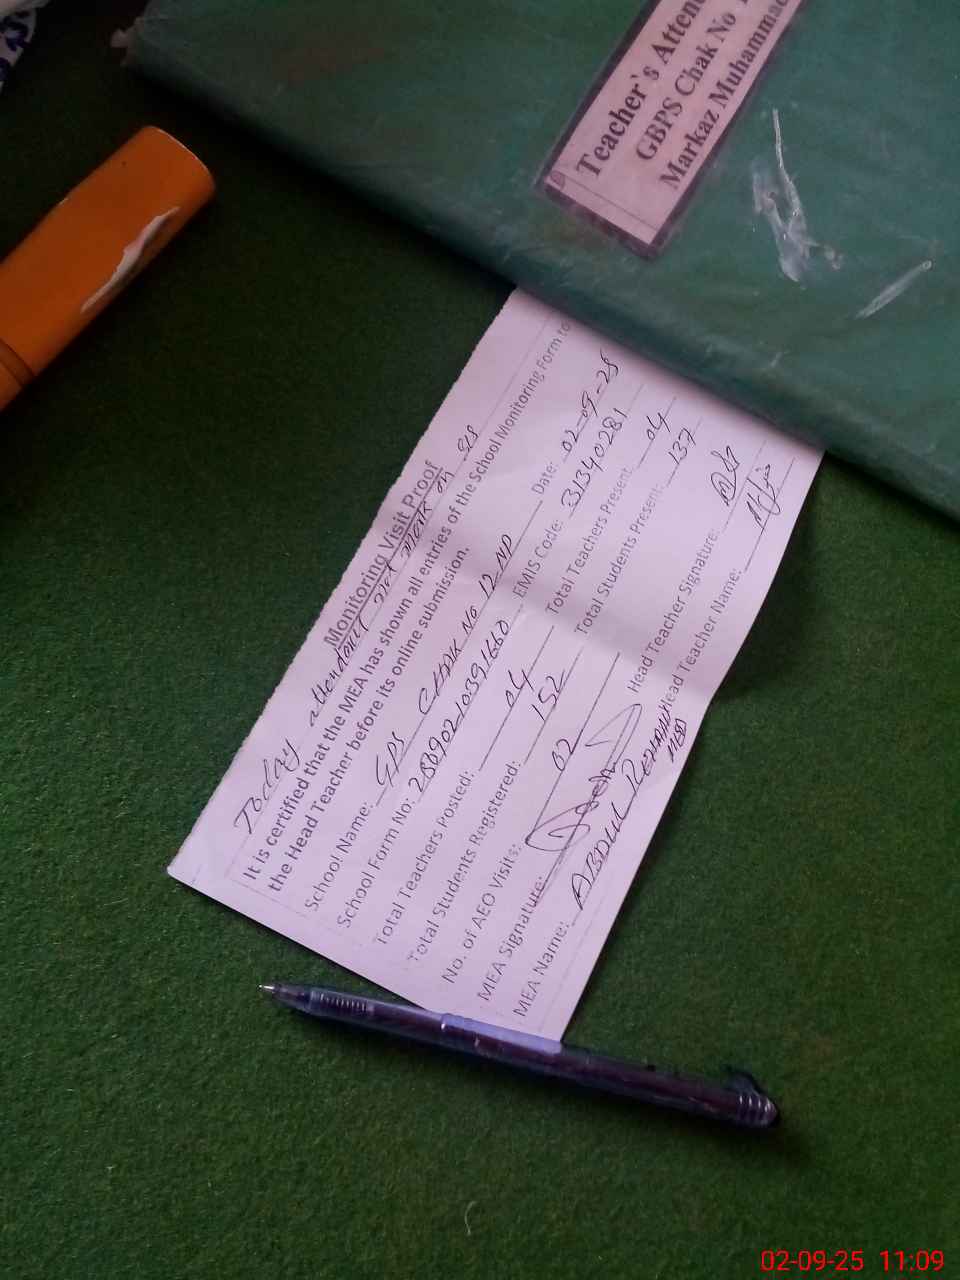 Teacher`s Atten
GBPS Chak No
Markaz Muhammad
Monitoring Visit Proof
Today attendance not mark on SIS
It is certified that the MEA has shown all entries of the School Monitoring Form to
the Head Teacher before its online submission.
School Name: GPS CHAK No 12 NP Date: 02-09-25
School Form No: EMIS Code: 31340281
Total Teachers Posted: 04 Total Teachers Present: 04
Total Students Registered: 152 Total Students Present: 137
No. of AEO Visits: 02
MEA Signature: Head Teacher Signature:
MEA Name: ABDUL REHMAN Head Teacher Name:
02-09-25 11:09